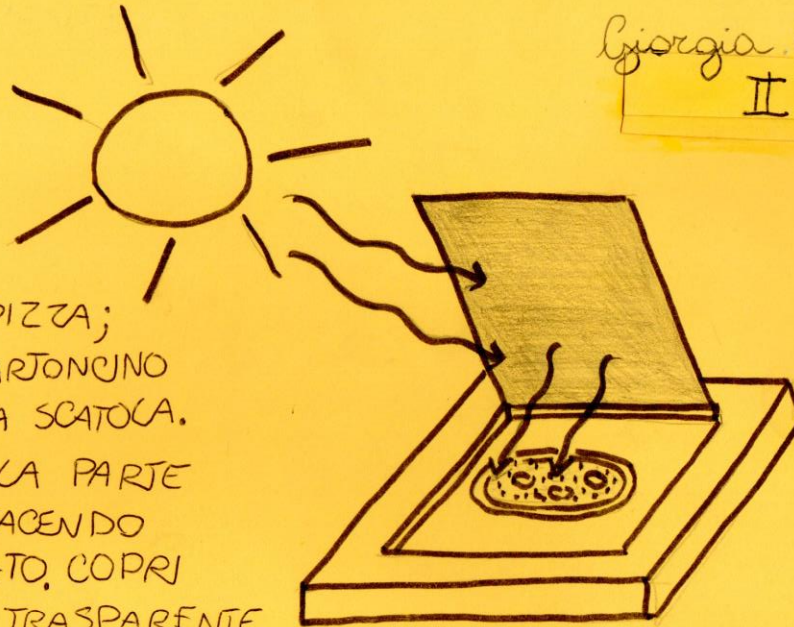 Giorgia.
II
PIZZA;
CARTONCINO
A SCATOLA.
LA PARTE
FACENDO
TO. COPRI
TRASPARENTE